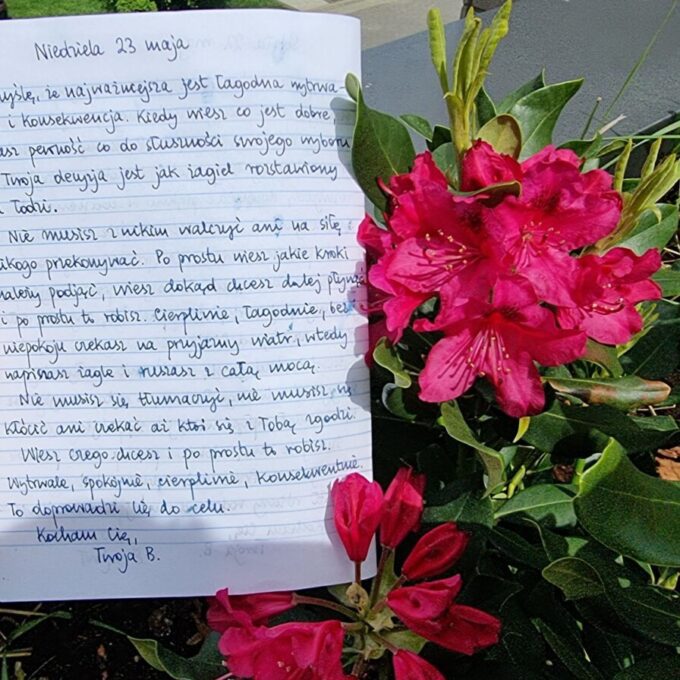 Niedziela 23 maja
myślę, że najważniejsza jest łagodna wytrwa-
i konsekwencja. Kiedy wiesz co jest dobre,
masz pewność co do słuszności swojego wyboru
Twoja decyzja jest jak żagiel rozstawiony
łodzi.
Nie musisz z nikim walczyć ani na siłę
nikogo przekonywać. Po prostu wiesz jakie kroki
należy podjąć, wiesz dokąd chcesz dalej płynąć
i po prostu to robisz. Cierpliwie, łagodnie, bez
niepokoju czekasz na przyjazny wiatr, wtedy
napinasz żagle i ruszasz z całą mocą.
Nie musisz się tłumaczyć, nie musisz się
kłócić ani czekać aż ktoś się z Tobą zgodzi.
Wiesz czego chcesz i po prostu to robisz.
Wytrwale, spokojnie, cierpliwie, konsekwentnie.
To doprowadzi Cię do celu.
Kocham Cię,
Twoja B.